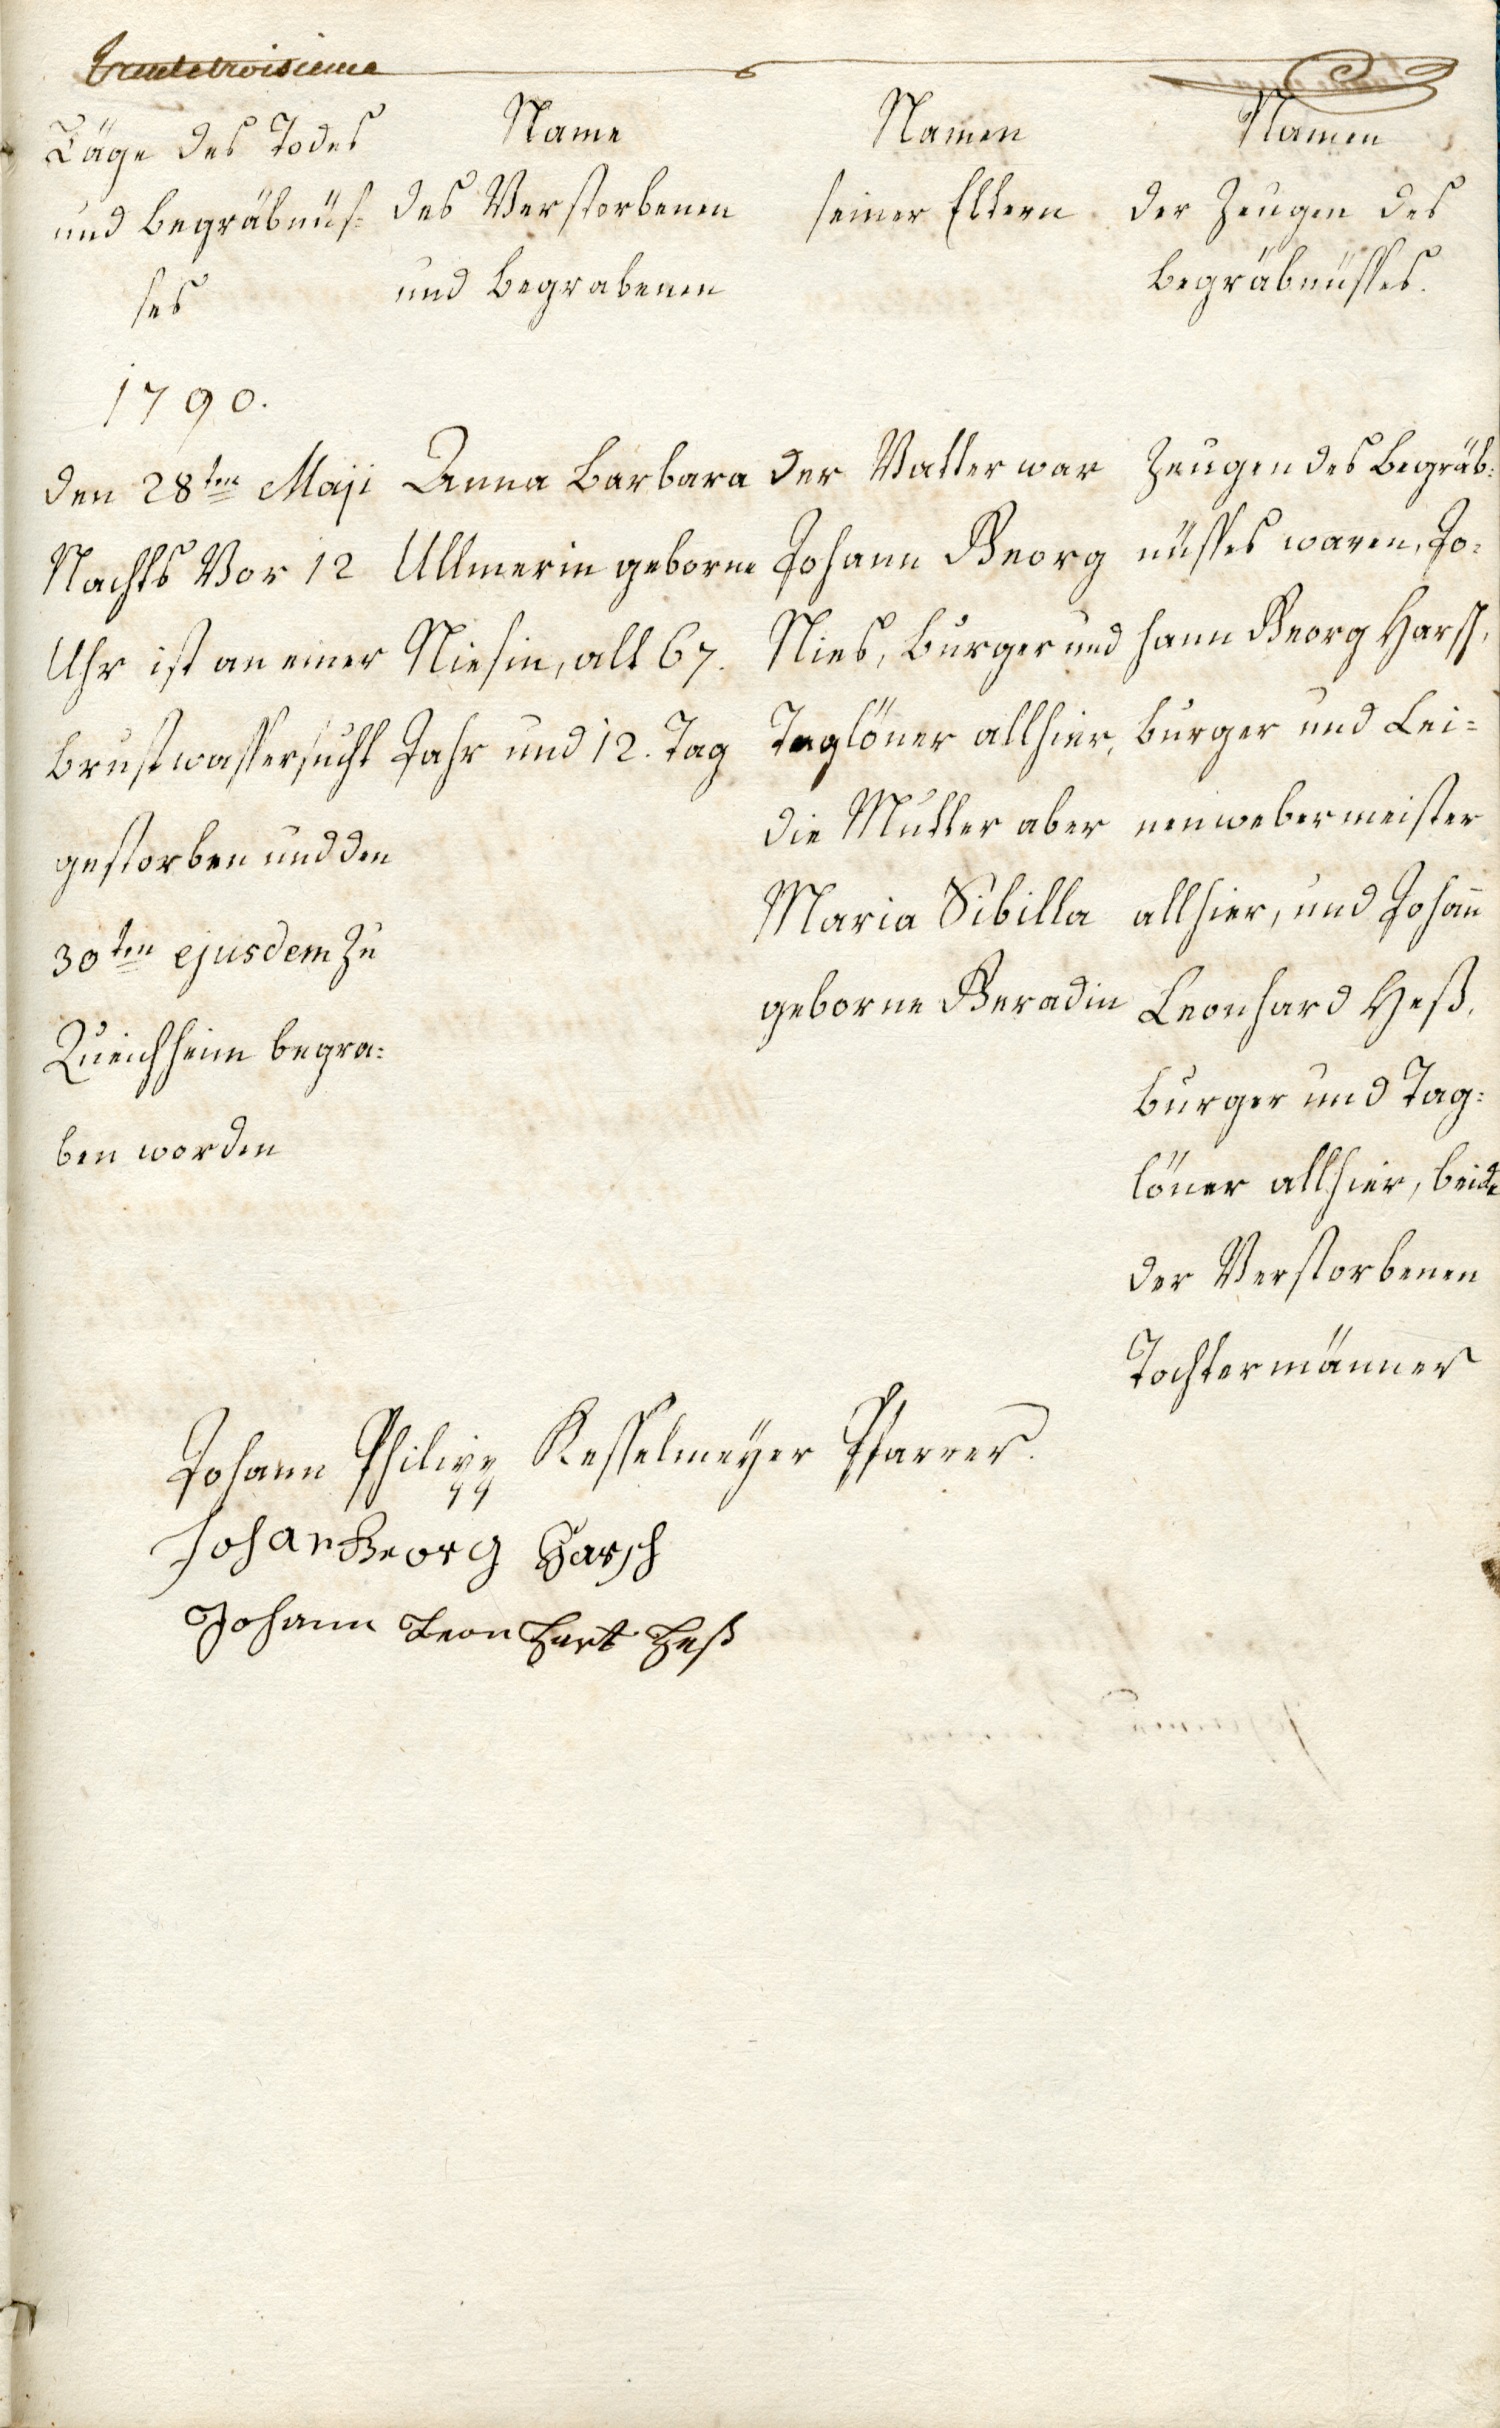 trentetroisieme
Täge des Todes
und begräbnüs=
ses
Name
des Verstorbenen
und begrabenen
Namen
seiner Eltern
Namen
der Zeugen des
begräbnüsses.
1790.
den 28ten Maji
Nachts Vor 12
Uhr ist an einer
brustwassersucht
gestorben und den
30ten ejusdem zu
Queichheim begra=
ben worden
Anna Barbara
Ullmerin geborne
Niesin, alt 67.
Jahr und 12. Tag
der Vatter war
Johann Georg
Nies, burger und
Taglöner allhier,
die Mutter aber
Maria Sibilla
geborne Geradin
Zeugen des begräb=
nüsses waren, Jo=
hann Georg Harsch,
burger und Lei=
nenwebermeister
allhier, und Johan̄
Leonhard Heß,
burger und Tag=
löner allhier, beide
der Verstorbenen
Tochtermänner
Johann Philipp Kesselmeÿer Pfarrer.
Johan Georg Harsch
Johann Leonhart Heß